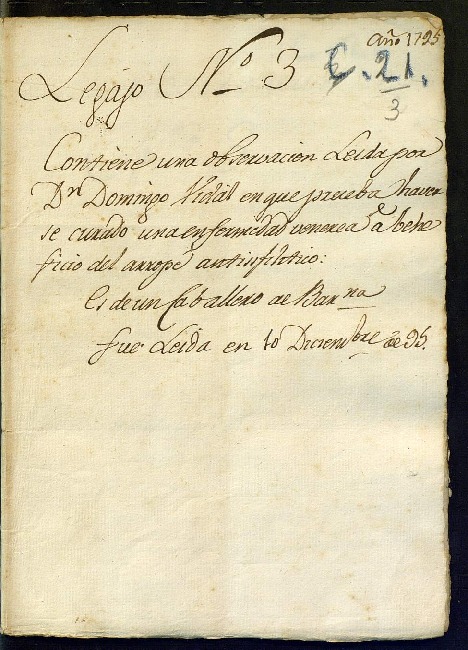 Año 1795
Legajo Nº 3
C. 21.
3
Contiene una observacion Leida por
Dn Domingo Vidal en que prueba haver
se curado una enfermedad venerea a bene
ficio del arrope antisifilitico:
Es de un Caballero de Barna
fue Leida en 10 Diciembre de 95.